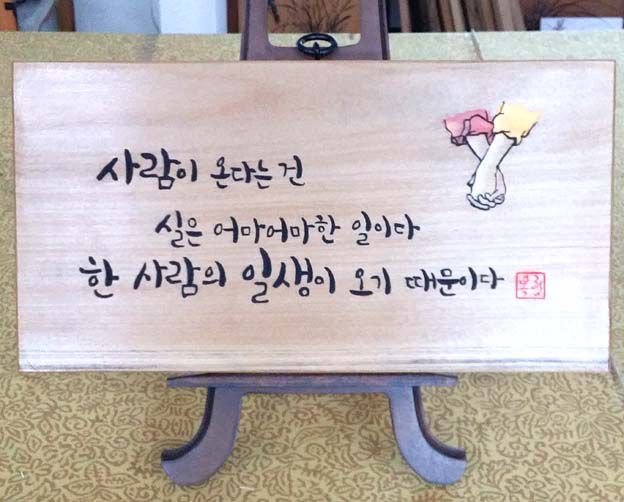 사람이 온다는 건
실은 어마어마한 일이다
한 사람의 일생이 오기 때문이다